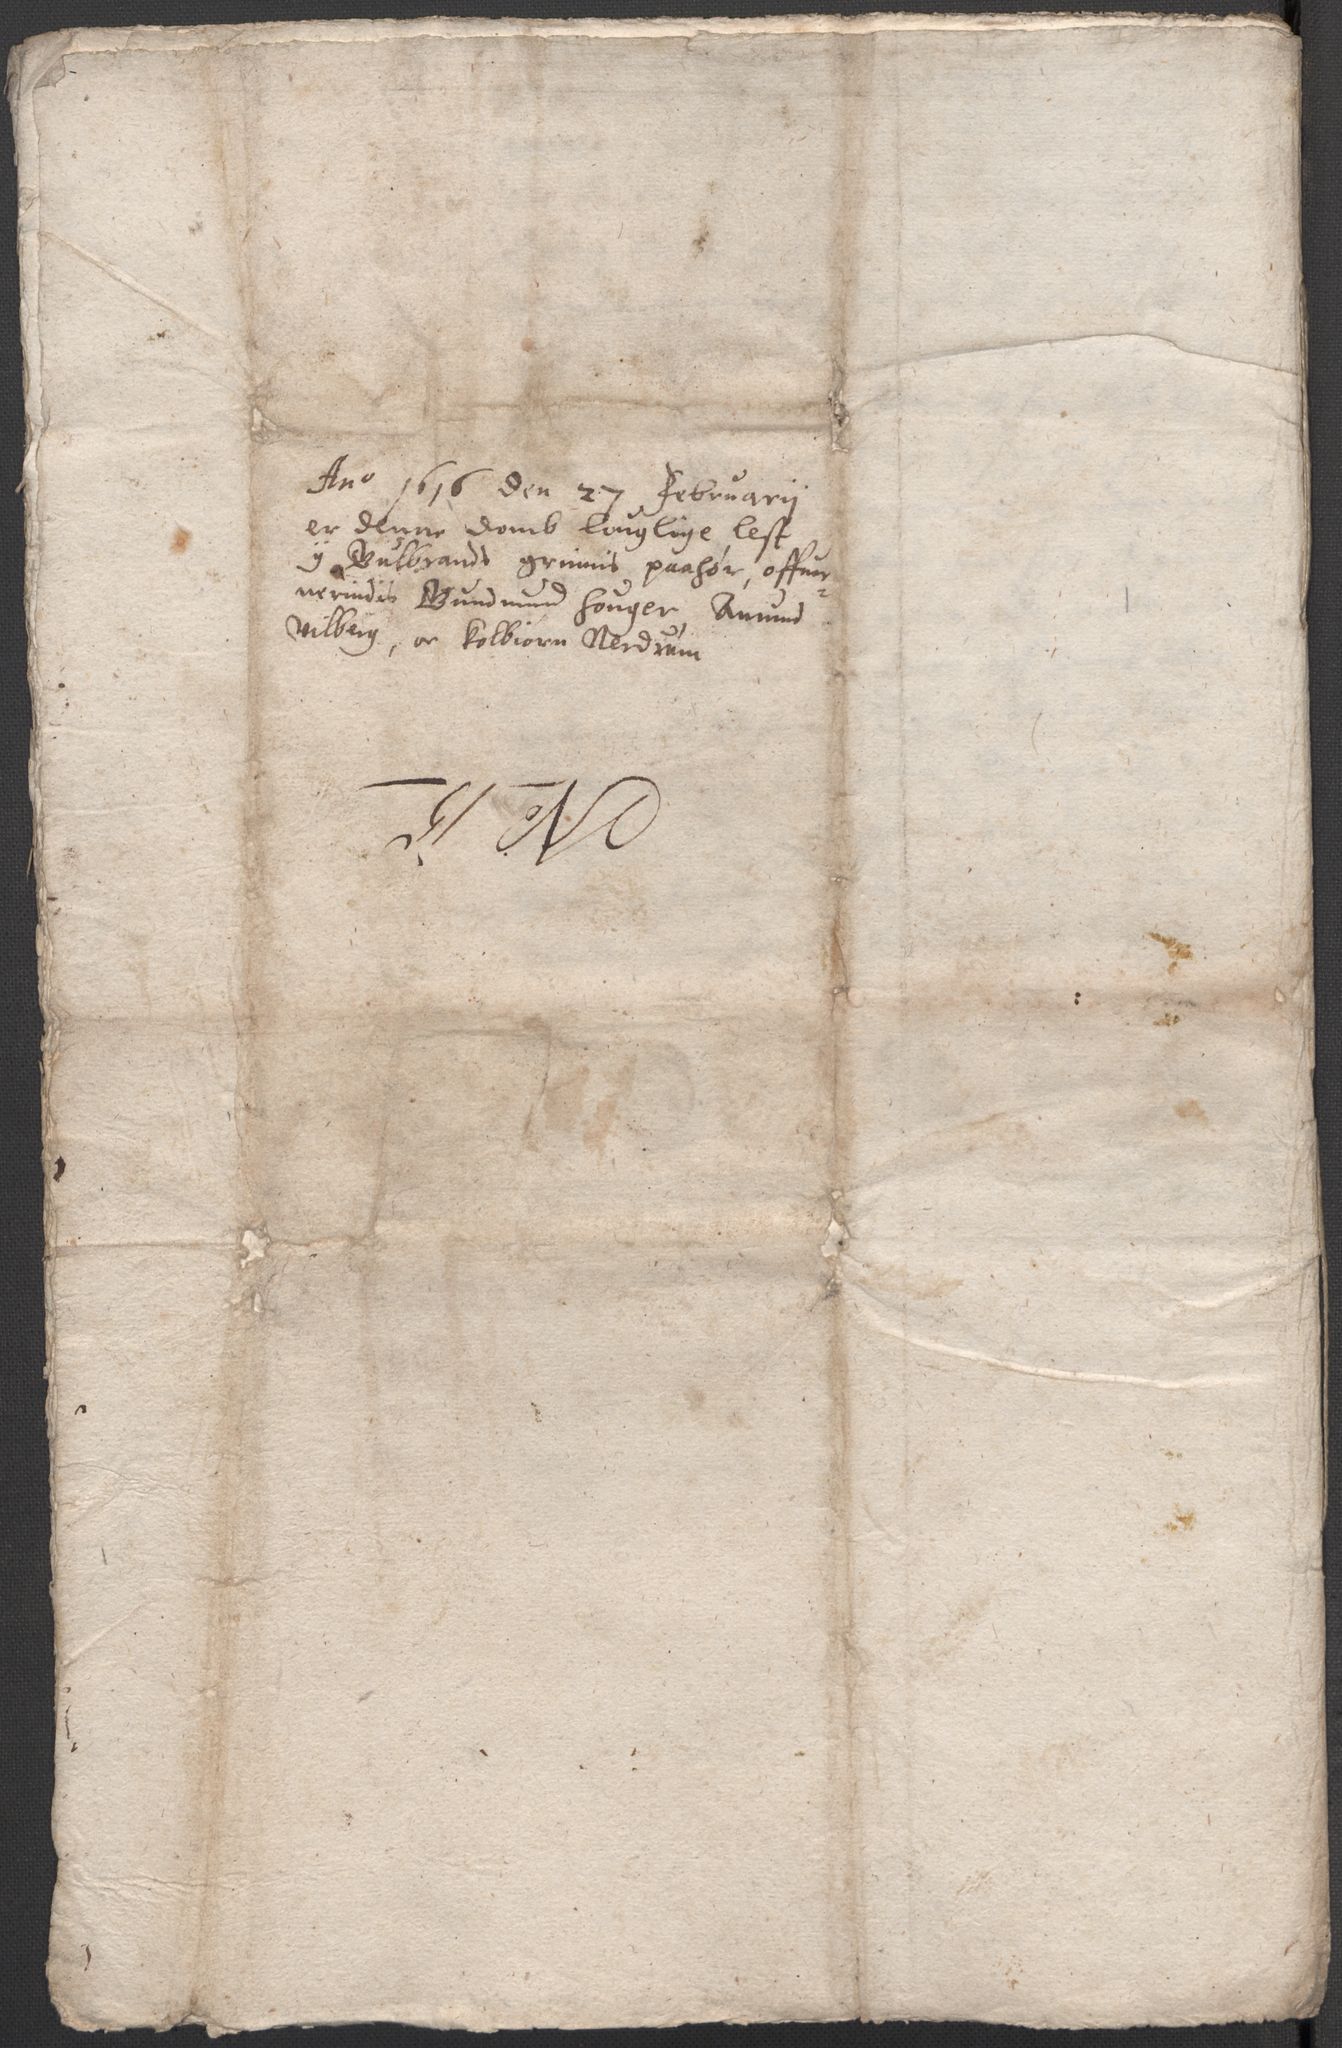 Anº 1616 den 27 Februarij
er denne domb louglige lest
ÿ Gulbrands grimis paahør, offuer
nerindis Gundmund houger, Amund
Vilberg, oc Kolbiørn Nerdrum
Nº 15